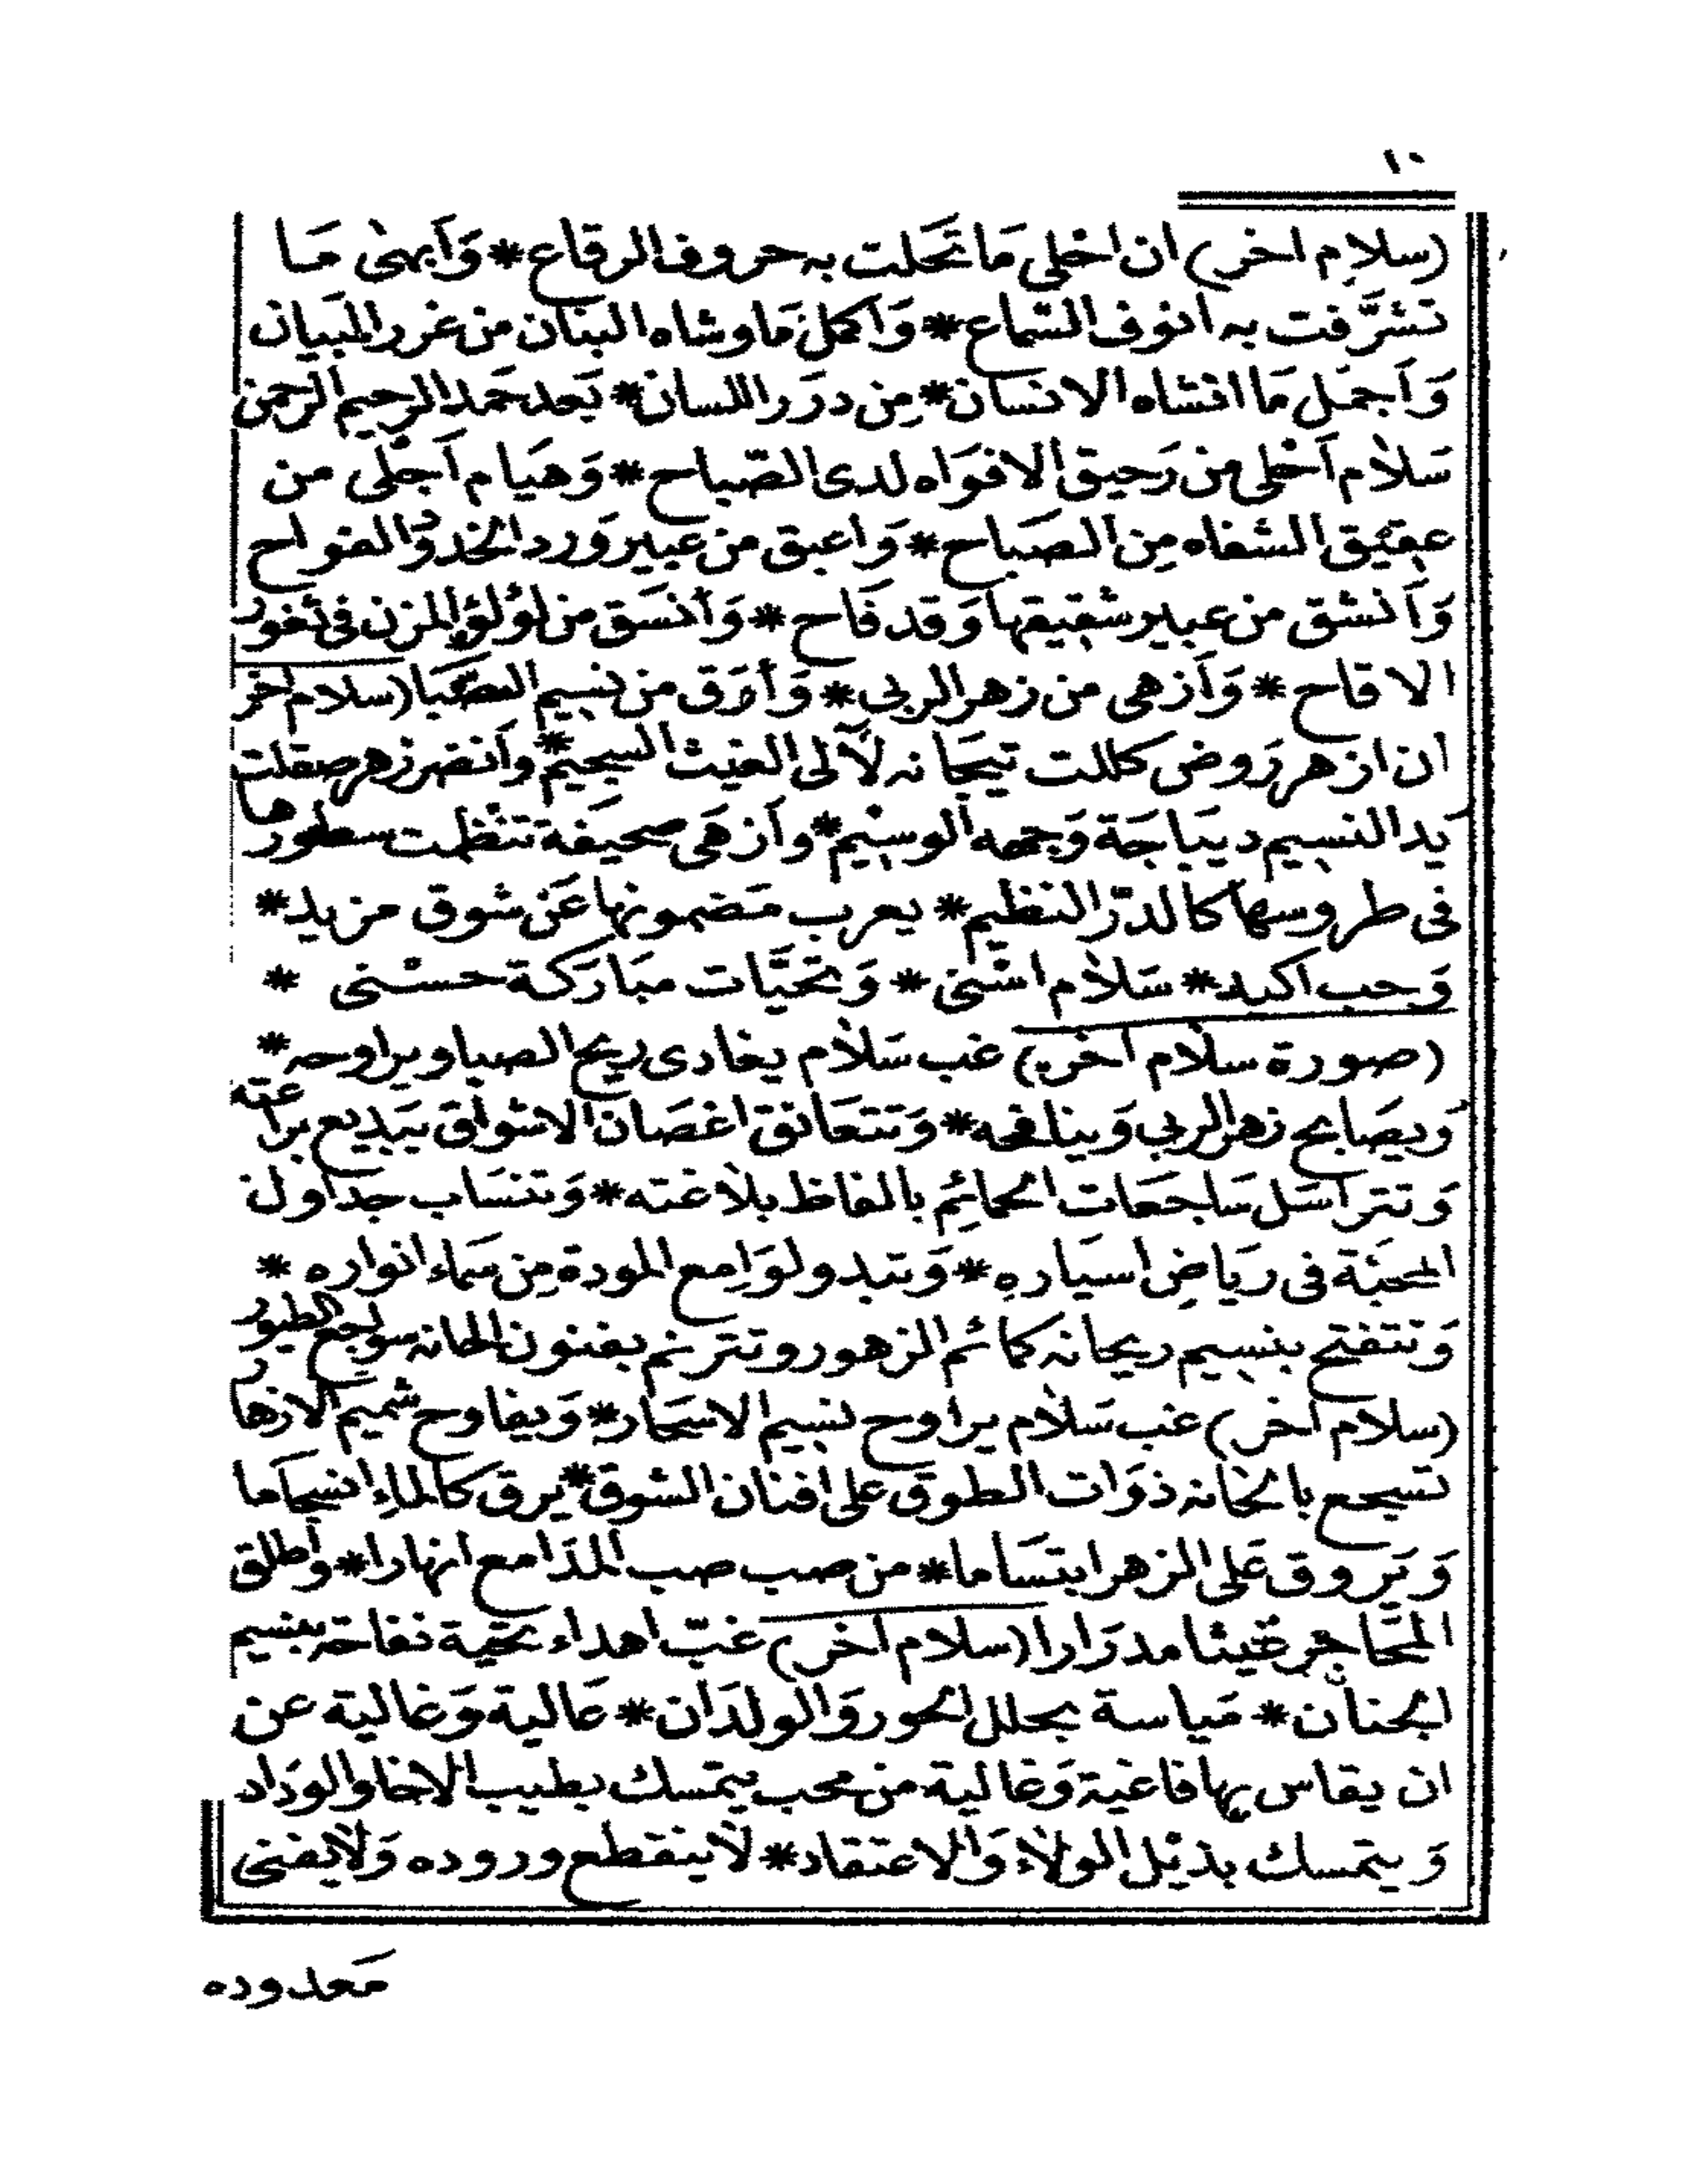 ١٠
(سلام اخر) ان احلى مَا تَحلت به حروف الرقاع * وَأبهى مَا
تشرَّفت به انوف السّماع * وَاكمل مَا وشاه البنان من غرر البيان
وَأجمَل مَا انشاه الانسان * مِن دُرَر اللسان * بَعد حَمد الرحيم الرحمن
سَلام أحْلى من رَحيق الافوَاه لدى الصّباح * وَهيَام أجْلى من
عقيق الشفاه مِن الصَباح * وَاعبق من عبير وَرد الخدوْ الفواح
وَأنشق من عبير شقيقها وَقد فَاح * وَأنسَق من لؤلؤ المزن فى ثغور
الاقاح * وَأزهى من زهر الربى * وَأرَق من نسيم الصَّبَا (سلام اخر
ان ازهر رَوض كللت تيجَانه لآلى الغيث السجيم * وأنضر زهر صقلت
يَد النسيم ديبَاجَة وَجهه الوسيْم * وأزهَى صحيفَة تنظمت سطورها
فى طروسها كالدرّ النظيم * يعرب مَضمونها عَن شوق مزيد *
وَحب اكيد * سَلام اسْنى * وَتحيَّات مبَارَكة حسْنى *
(صورة سلام اخر) غب سَلام يغادى ريح الصبا ويراوحه *
وَيصَابح زهر الربى وَينافحه * وَتتعَانق اغصَان الاشواق ببَديع براعته
وَتتراسَل سَاجعَات الحمائِم بالفاظ بلاغته * وَتنسَاب جدَاول
المحبَّة فى ريَاض اسيَاره * وَتبدو لوَامع المودة مِن سَماء انواره *
وَتتفتح بنسيم ريحانه كمائم الزهور وتترنم بفنون الحانه سواجع الطيور
(سلام اخر) غب سَلام يراوح نسيم الاسحَار * وَيفاوح شميم الازهار
تسجع بالحَانه ذوَات الطوق على افنان الشوق * يرق كالماء انسجَاما
وَيَروق عَلى الزهر ابتسَاما * من صب صب المدَامع انهارا * وأطلق
المحَاجر غيثا مدرَارا (سلام اخر) غبّ اهداء تحية نفاحة بنسيم
الجنان * مَياسة بحلل الحور وَالولدَان * عَالية وَغالية عن
ان يقاس بها فاغية وَغالية من محب يتمسك بطيب الاخا والودَاد
وَيتمسك بذيْل الولاء وَالاعتقاد * لَا ينقطع وروده وَلَا يفنى
مَعدوده